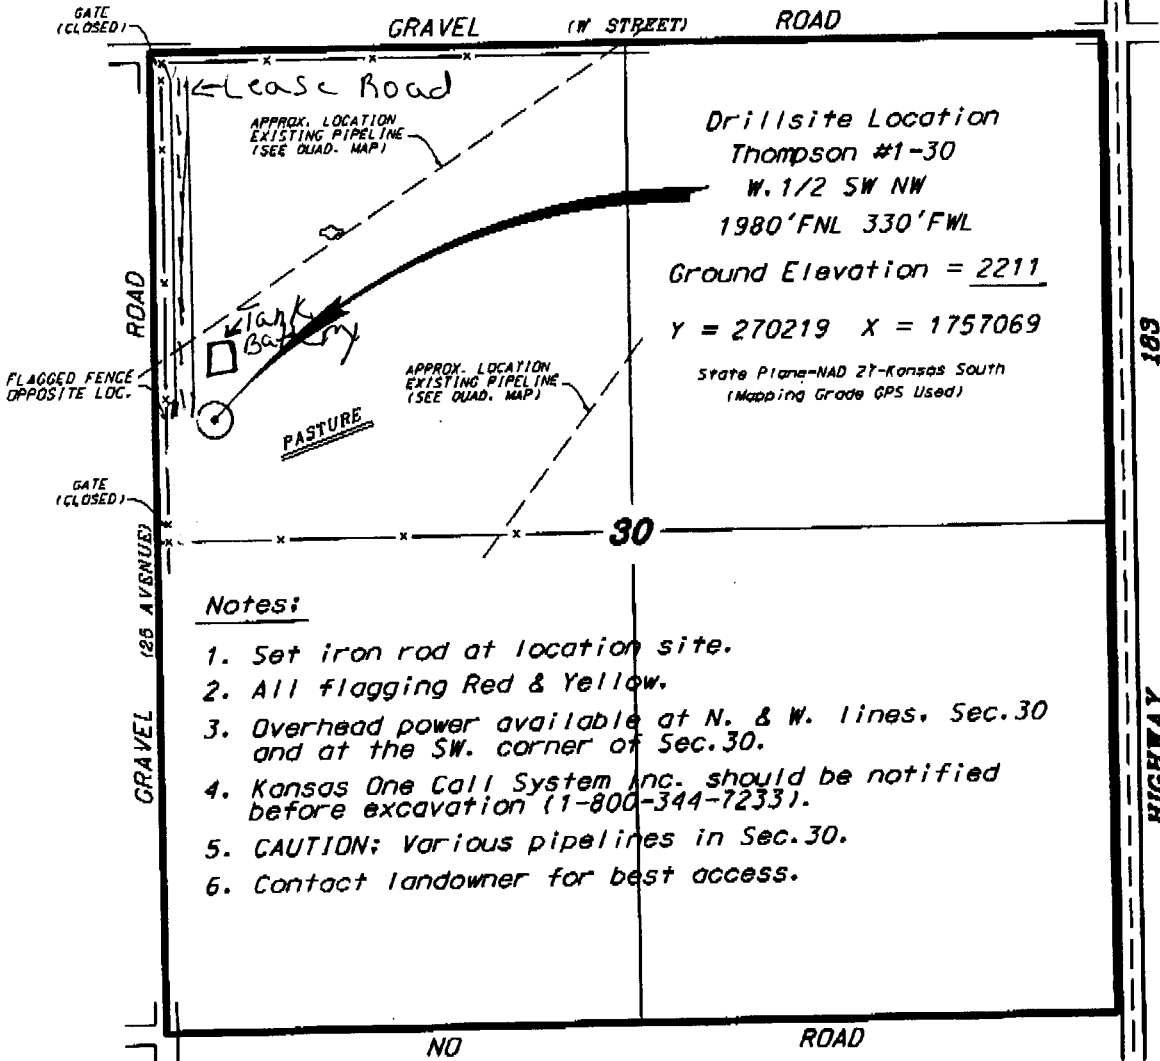 GATE
(CLOSED)
GRAVEL (W STREET) ROAD
←Lease Road
APPROX. LOCATION
EXISTING PIPELINE
(SEE QUAD. MAP)
Drillsite Location
Thompson #1-30
W. 1/2 SW NW
1980'FNL 330'FWL
Ground Elevation = 2211
Y = 270219 X = 1757069
State Plane-NAD 27-Kansas South
(Mapping Grade GPS Used)
ROAD
Tank
Battery
183
FLAGGED FENCE
OPPOSITE LOC.
APPROX. LOCATION
EXISTING PIPELINE
(SEE QUAD. MAP)
PASTURE
GATE
(CLOSED)
30
(25 AVENUE)
Notes:
1. Set iron rod at location site.
2. All flagging Red & Yellow.
3. Overhead power available at N. & W. lines, Sec.30
and at the SW. corner of Sec.30.
4. Kansas One Call System Inc. should be notified
before excavation (1-800-344-7233).
5. CAUTION: Various pipelines in Sec.30.
6. Contact landowner for best access.
GRAVEL
HIGHWAY
NO ROAD